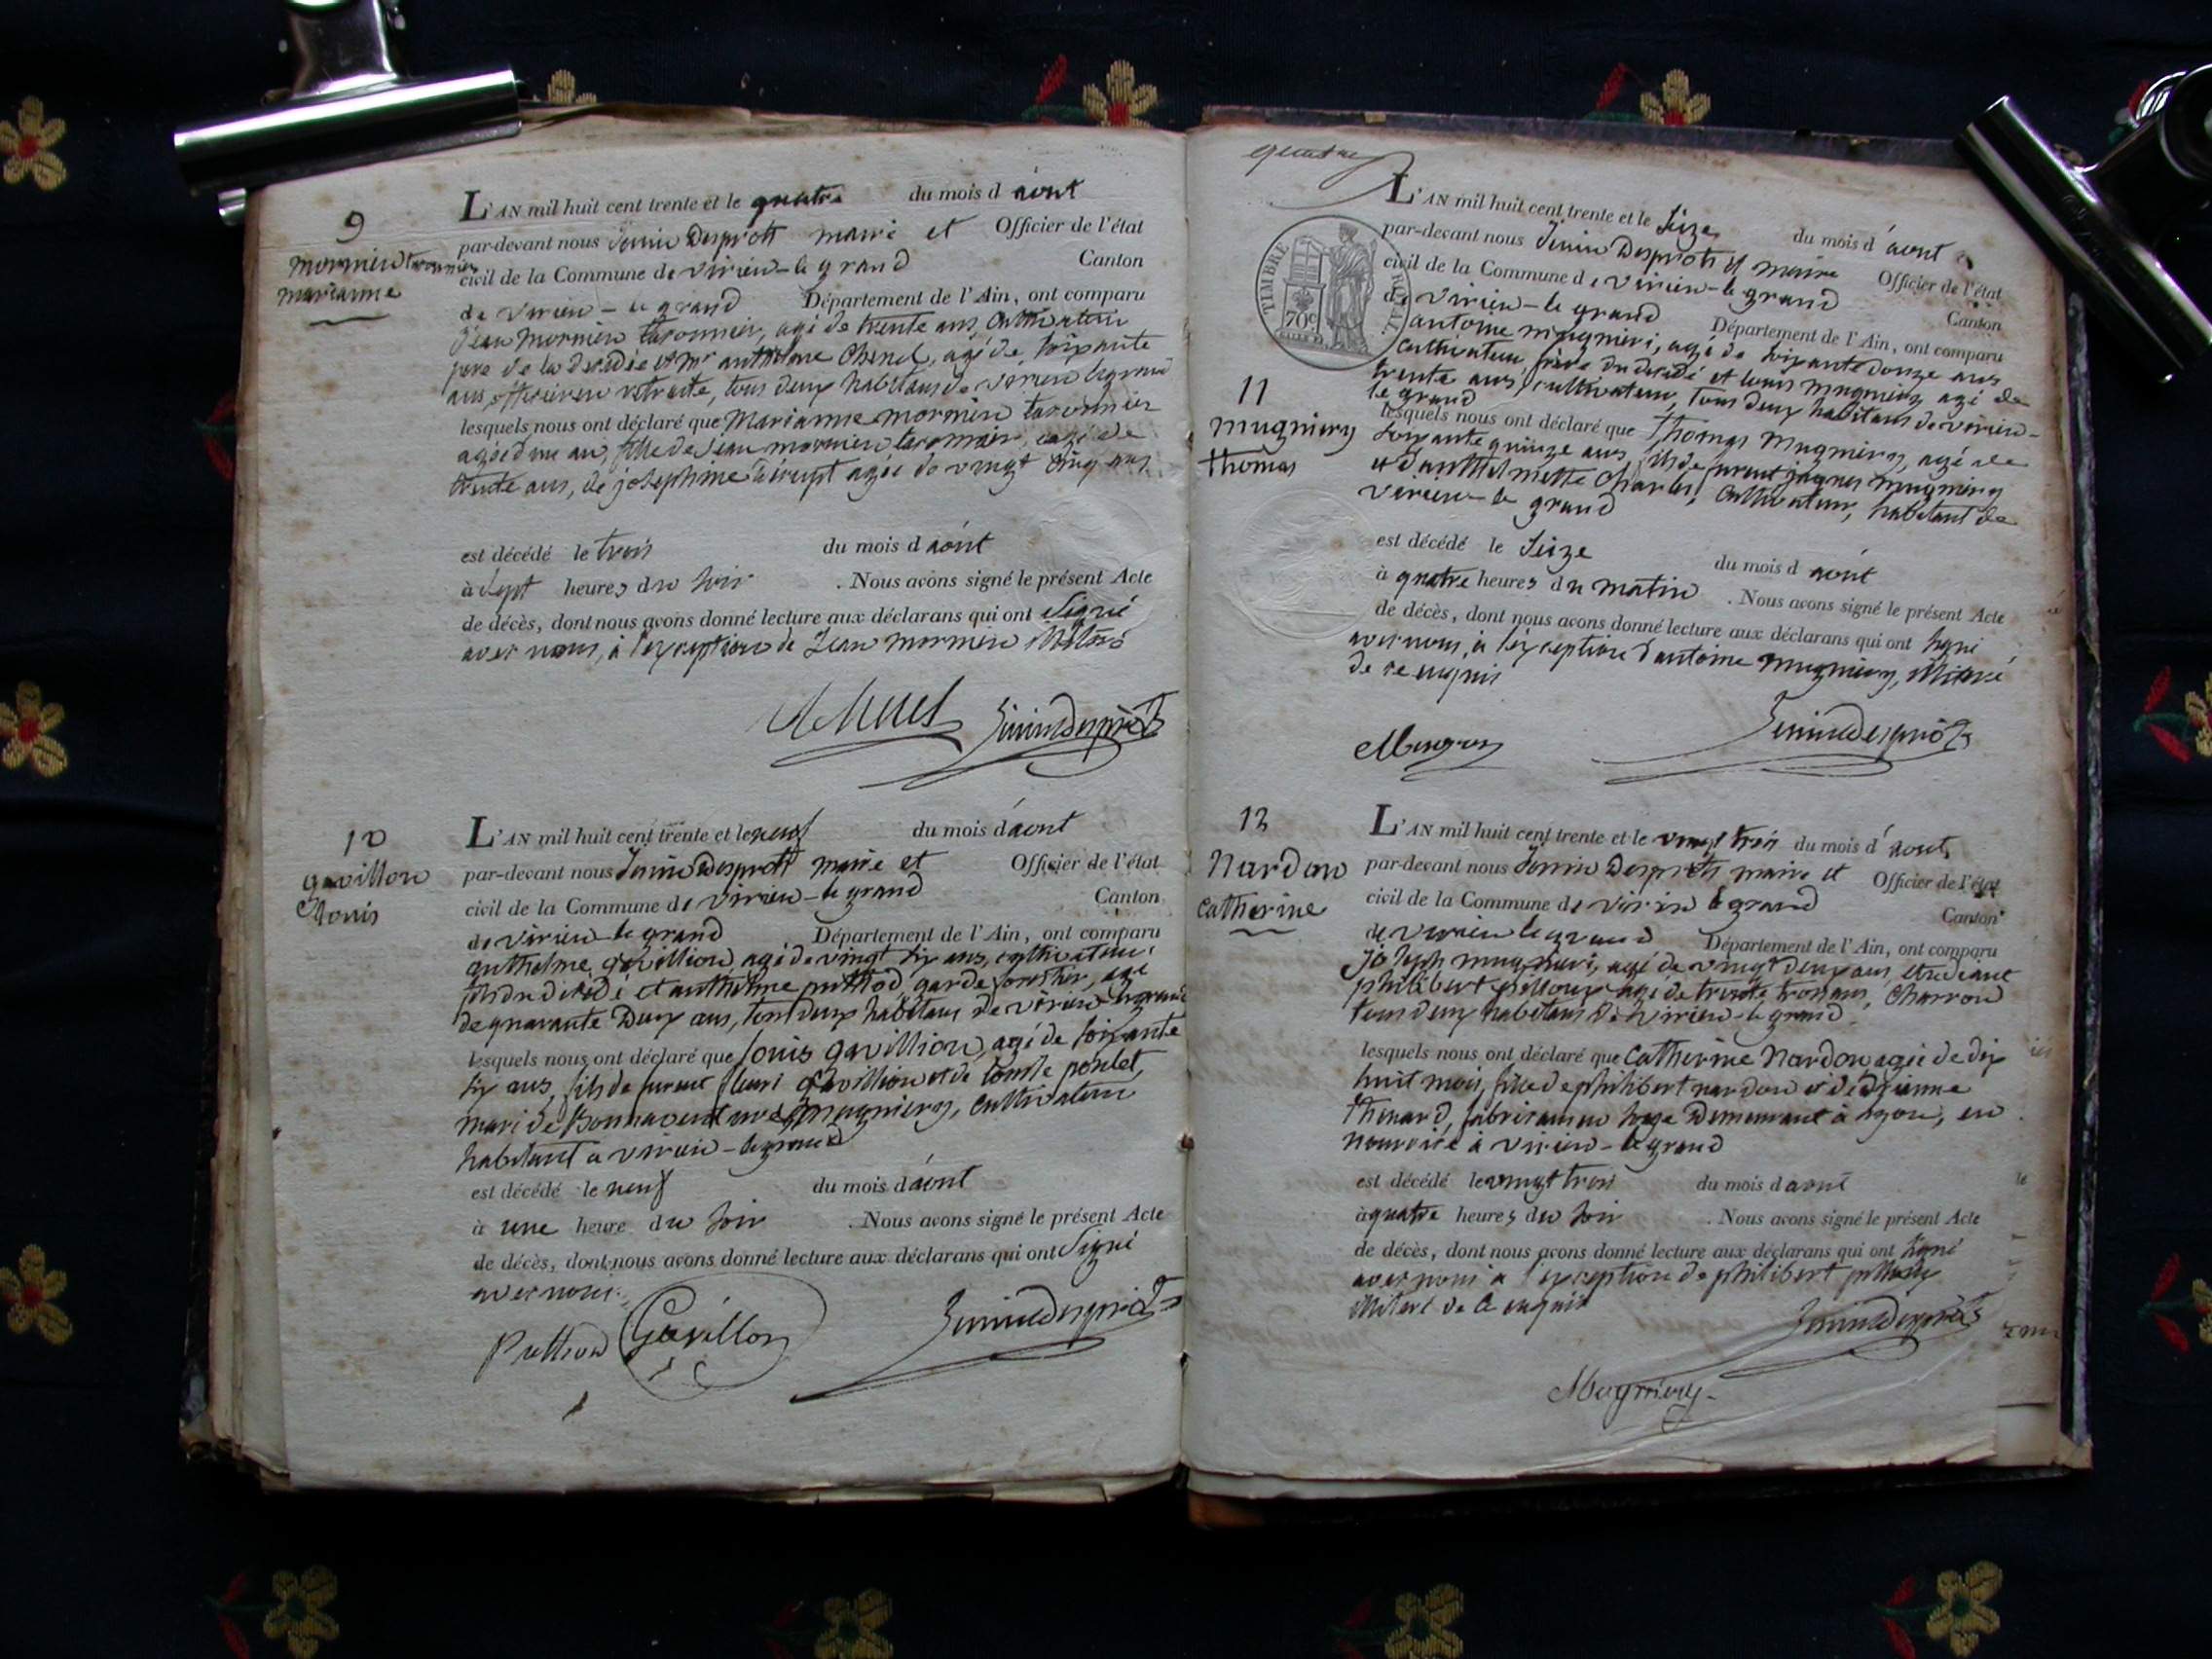 9
mormien tavernier
marianne
L'AN mil huit cent trente et le quatre du mois d août
par-devant nous Jenin Desprots maire et Officier de l'état
civil de la Commune de virieu-le grand Canton
de virieu-le grand Département de l'Ain, ont comparu
Jean mornieu tavernier, agé de trente ans, Cultivateur
pere de la decedée et mr anthelme Chenel, agé de soixante
ans, officier en retraite, tous deux habitans de virieu legrand
lesquels nous ont déclaré que Marianne mornieu tavernier
agée d'un an, fille de Jean mornieu tavernier, agé de
trente ans, de josephine agée de vingt cinq ans
est décédé le trois du mois d août
à Sept heures du Soir . Nous avons signé le présent Acte
de décès, dont nous avons donné lecture aux déclarans qui ont Signé
avec nous, à l'exception de Jean mornieu illitéré
Jenindesprots
10
gavillon
Louis
L'AN mil huit cent trente et le neuf du mois d'août
par-devant nous Jenin Desprots maire et Officier de l'état
civil de la Commune de virieu-le grand Canton
de virieu-le grand Département de l'Ain, ont comparu
anthelme gavillion, agé de vingt six ans, cultivateur
fils du décédé et anthelme puthod, garde forestier, agé
de quarante Deux ans, tous deux habitans de virieu-legrand
lesquels nous ont déclaré que Louis gavillion, agé de soixante
six ans, fils de furent fleuri gavillion et de poulet,
mari de Bonnaventure mugniery, cultivateur
habitant a virieu-legrand
est décédé le neuf du mois d'août
à une heure du Soir . Nous avons signé le présent Acte
de décès, dont nous avons donné lecture aux déclarans qui ont Signé
avec nous.
Puthod Gavillon Jenindesprots
quatre
TIMBRE ROYAL.
70c
L'AN mil huit cent trente et le Seize du mois d'août
par-devant nous Jenin Desprots et maire Officier de l'état
civil de la Commune de virieu-le grand Canton
de virieu-le grand Département de l'Ain, ont comparu
antoine mugnieri, agé de soixante douze ans
cultivateur, frère du décédé et louis mugniery agé de
trente ans, cultivateur, tous deux habitans de virieu-
le grand
11
mugniery
thomas
lesquels nous ont déclaré que Thomas Mugniery, agé de
soixante quinze ans, fils de furent jaques mugniery
et d'anthelmette Charles, Cultivateur, habitant de
virieu-le grand
est décédé le Seize du mois d août
à quatre heures du matin . Nous avons signé le présent Acte
de décès, dont nous avons donné lecture aux déclarans qui ont signé
avec nous, à l'exception d'antoine mugniery, illitéré
de ce enquis
Jenindesprots
12
Nardon
Catherine
L'AN mil huit cent trente et le vingt trois du mois d'août
par-devant nous Jenin Desprots maire et Officier de l'état
civil de la Commune de virieu le grand Canton
de virieu le grand Département de l'Ain, ont comparu
Joseph mugnieri, agé de vingt deux ans, etudiant
philibert agé de trente trois ans, Charron
tous deux habitans de virieu-le grand
lesquels nous ont déclaré que Catherine Nardon, agée de dix
huit mois, fille de philibert nardon et d'etienne
thenard, fabricans en soye Demeurant à Lyon, en
nourrice à virieu-le grand
est décédé le vingt trois du mois d août
à quatre heures du Soir . Nous avons signé le présent Acte
de décès, dont nous avons donné lecture aux déclarans qui ont signé
avec nous à l'exception de philibert
illiteré de ce enquis
Jenindesprots
Mugniery